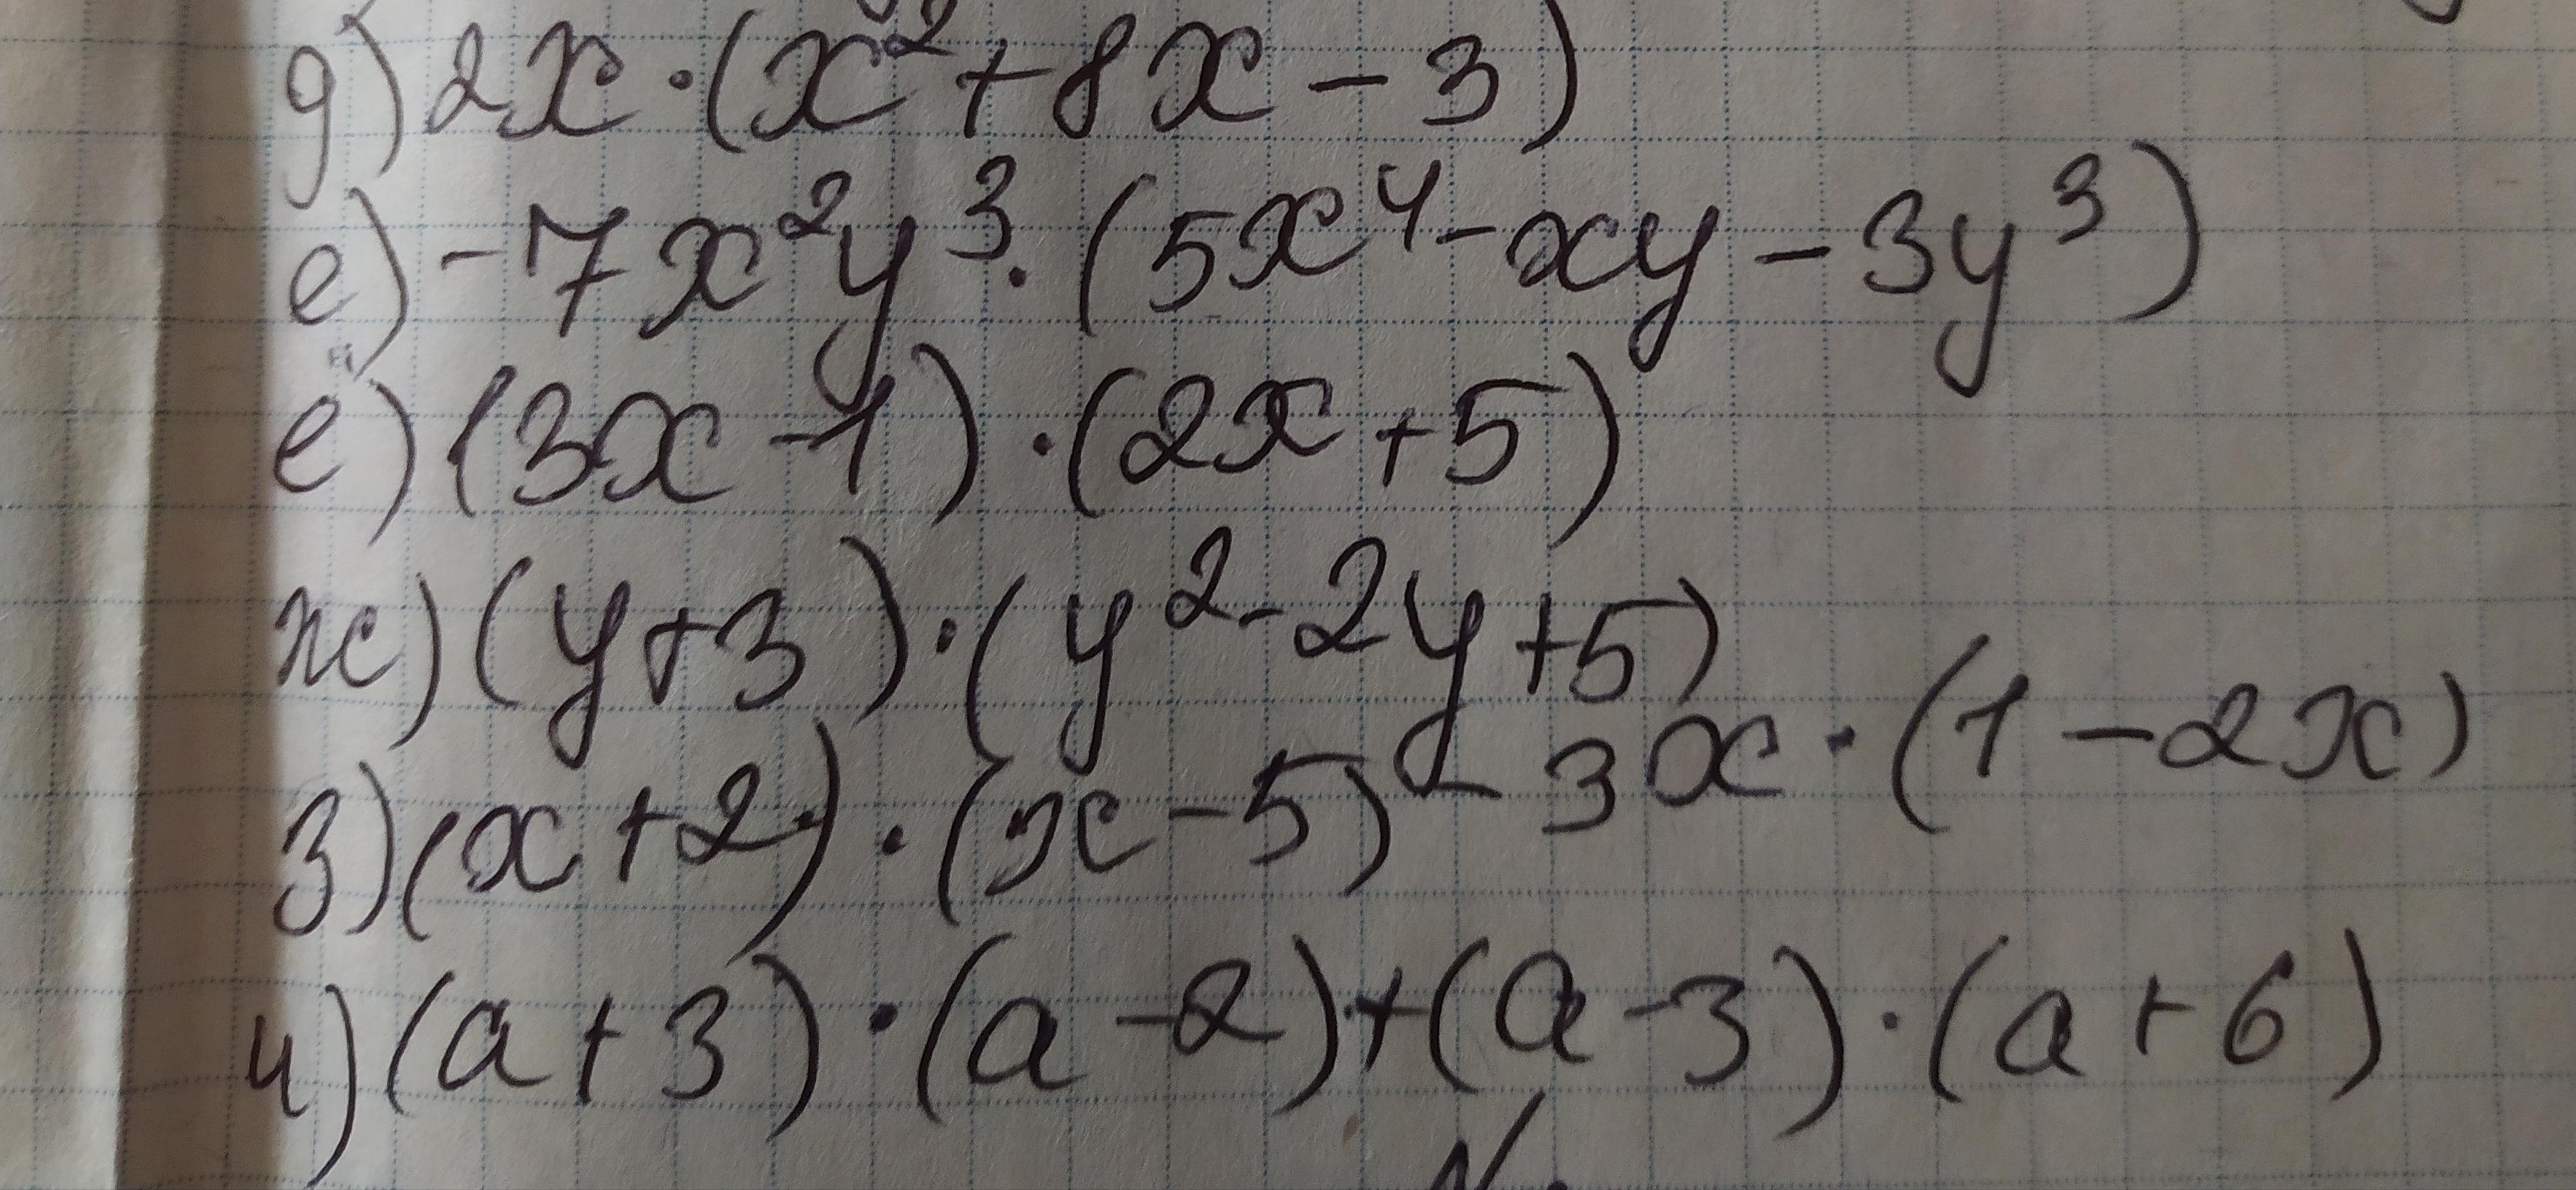 д) 2x·(x²+8x-3)
е) -7x²y³·(5x⁴-xy-3y³)
ё) (3x-1)·(2x+5)
ж) (y+3)·(y²-2y+5)
з) (x+2)·(x-5)-3x·(1-2x)
и) (a+3)·(a-2)+(a-3)·(a+6)